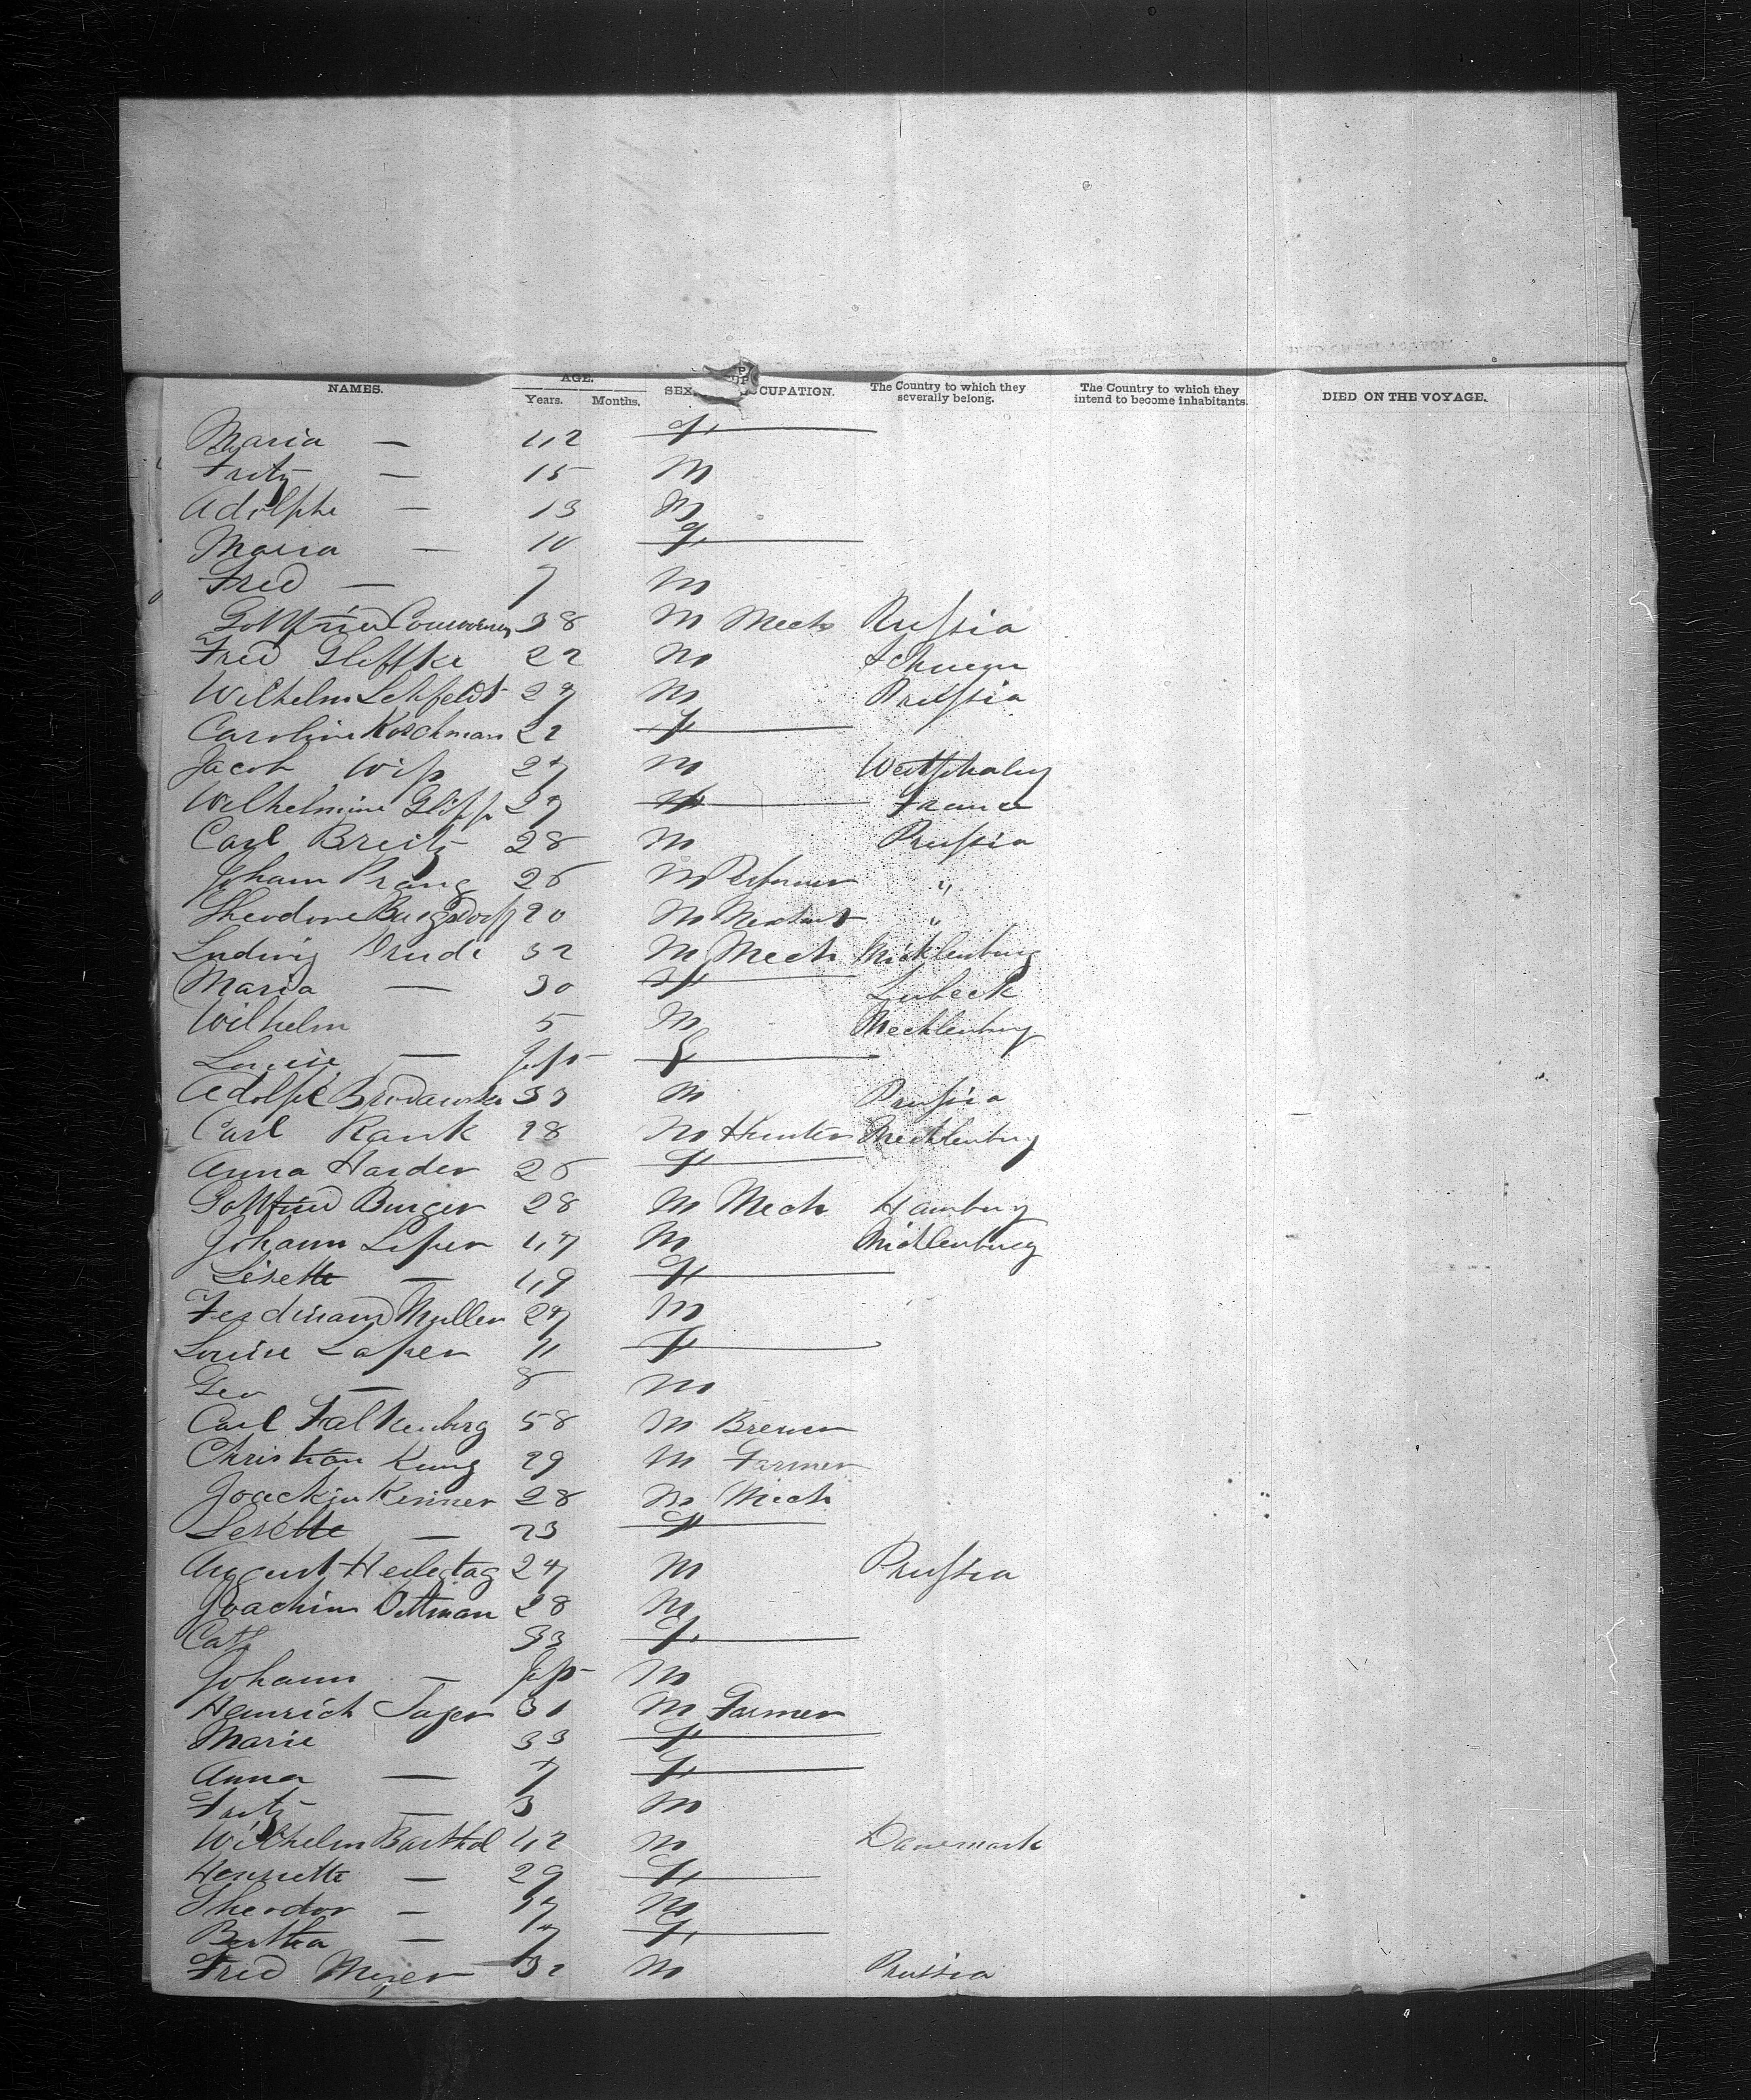 NAMES. AGE. Years. Months. SEX. OCCUPATION. The Country to which they severally belong. The Country to which they intend to become inhabitants. DIED ON THE VOYAGE.
Maria — 42 F
Fritz — 15 M
Adolphe — 13 M
Maria — 10 F
Fred — 7 M
Gottfried 38 M Mech Prussia
Fred Gleffke 22 M
Wilhelm Lehfeldt 27 M Prussia
Caroline Koschman 22 F
Jacob Wiss 27 M Westphaly
Wilhelmine 27 F France
Carl Breitz 28 M Prussia
Johann Prang 26 M "
Theodore 20 M "
Ludwig Drude 32 M Mech Mecklenburg
Maria — 30 F Lubeck
Wilhelm 5 M Mecklenburg
Louise — F
Adolph 33 M Prussia
Carl Rank 28 M Hunter Mecklenburg
Anna Harder 26 F
Gottfried Burger 28 M Mech Hamburg
Johann 47 M Mecklenburg
Lisette — 49 F
Ferdinand Muller 27 M
Louise 11 F
Geo — 8 M
Carl Falkenberg 58 M Brewer
Christian Kung 29 M Farmer
Joackin Renner 28 M Mech
Lisette — 23 F
August Heiletag 27 M Prussia
Joachim Dittman 28 M
Cath 33 F
Johann — M
Heinrich 31 M Farmer
Marie 33 F
Anna — 7 F
Fritz — 3 M
Wilhelm Barthol 42 M Danemark
Henriette — 29 F
Theodor — M
Bertha — 7 F
Fred Meyer 32 M Prussia